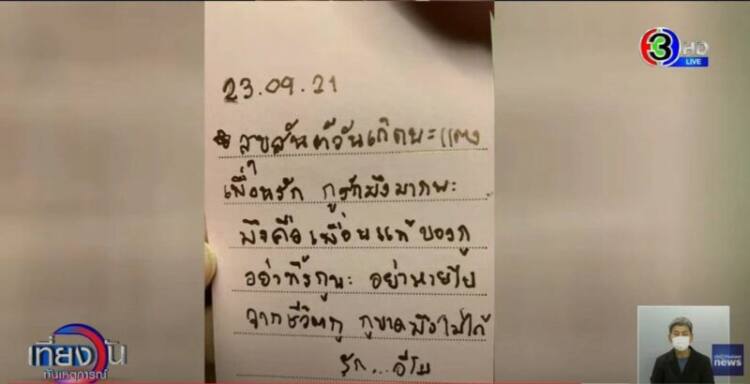 3 HD
LIVE
23.09.21
สุขสันต์วันเกิดนะแตง
เพื่อนรัก กูรักมึงมากนะ
มึงคือเพื่อนแท้ของกู
อย่าทิ้งกูนะ อย่าหายไป
จากชีวิตกู กูขาดมึงไม่ได้
รัก...อีโม
เที่ยงวัน
ทันเหตุการณ์
news